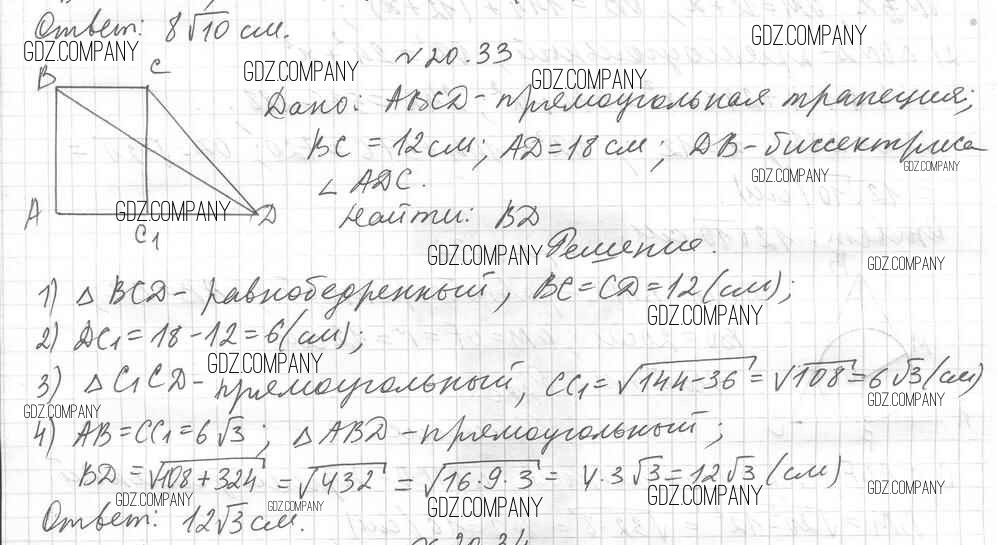 Ответ: 8√10 см.
GDZ.COMPANY
GDZ.COMPANY
№20.33
GDZ.COMPANY
GDZ.COMPANY
B C
Дано: ABCD - прямоугольная трапеция;
BC = 12 см; AD = 18 см; DB - биссектриса
GDZ.COMPANY
GDZ.COMPANY
∠ ADC.
A GDZ.COMPANY D
C₁
Найти: BD
Решение.
GDZ.COMPANY
GDZ.COMPANY
1) △ BCD - равнобедренный, BC = CD = 12 (см);
GDZ.COMPANY
2) DC₁ = 18 - 12 = 6 (см);
GDZ.COMPANY
3) △ C₁CD - прямоугольный, CC₁ = √144-36 = √108 = 6√3 (см)
GDZ.COMPANY
GDZ.COMPANY
4) AB = CC₁ = 6√3; △ ABD - прямоугольный;
BD = √108+324 = √432 = √16·9·3 = 4·3√3 = 12√3 (см)
GDZ.COMPANY
GDZ.COMPANY
GDZ.COMPANY
GDZ.COMPANY
GDZ.COMPANY
Ответ: 12√3 см.
№20.34